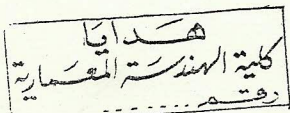 هدايا
كلية الهندسة المعمارية
رقم ........